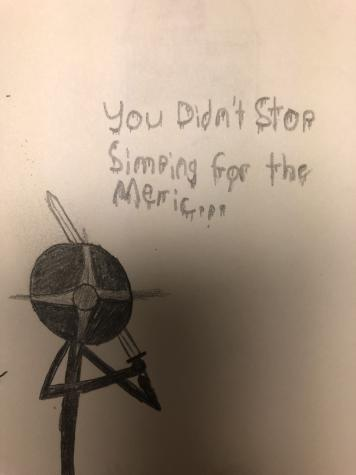 You Didn't Stop
Simping for the
Meric...